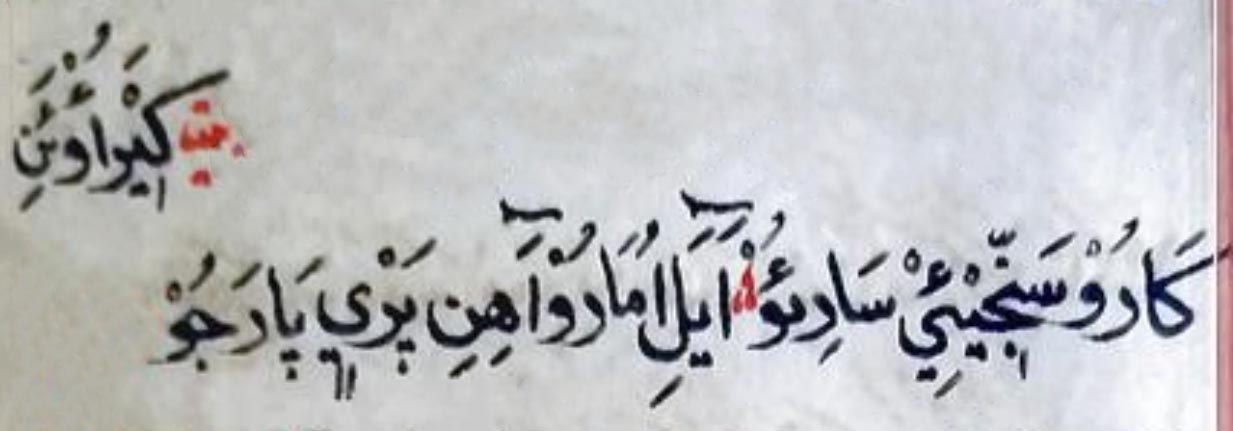 بيت كِيْرَاؤُئَنِ
كَارُوْ سَنِجّيْئِيْ سَارِيؤُ اَيَلِ اُمَارُوْ آهِنِ پَرْيِ پَارَجُوْ